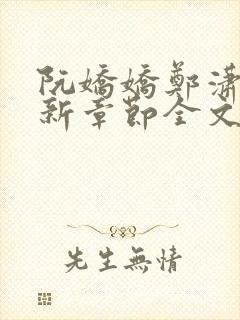 阮嬌嬌鄭瀟
新章節全文
先生無情